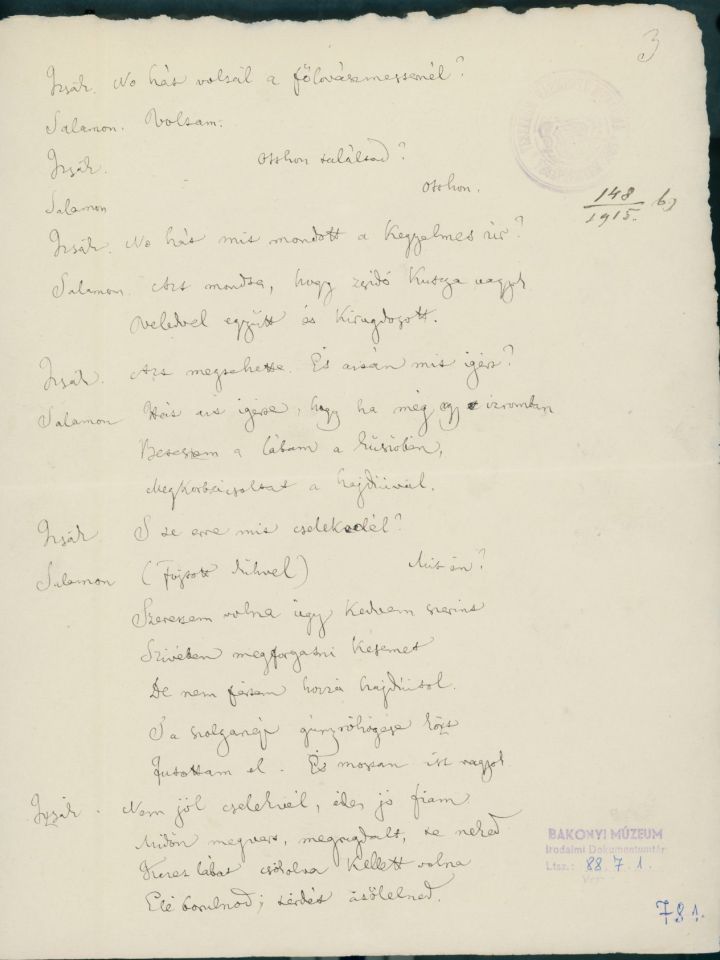 3
Izsák. No hát voltál a főlovászmesternél?
Salamon. Voltam.
Izsák. Otthon találtad?
Salamon Otthon.
148/1915. b)
Izsák. No hát mit mondott a Kegyelmes úr?
Salamon. Azt mondta, hogy zsidó kutya vagyok
Veledvel együtt és kirugdozott.
Izsák. Azt megtehette. És aztán mit igért?
Salamon Hát azt igérte, hogy ha még egy izromban
Beteszem a lábam a küszöbén,
Megkorbácsoltat a hajdúival.
Izsák S te erre mit cselekedél?
Salamon (Fojtott dühvel) Mit én?
Szerettem volna úgy kedvem szerint
Szivében megforgatni késemet
De nem fértem hozzá hajdúitol.
S a szolganép gúnyröhögése közt
Futottam el. És mostan itt vagyok.
Izsák. Nem jól cselekvél, édes jó fiam
Midőn megvert, megrugdalt, te neked
lábát csókolva kellett volna
Elé borulnod; térdét átölelned.
BAKONYI MÚZEUM
Irodalmi Dokumentumtár
Ltsz.: 88.7.1.
781.